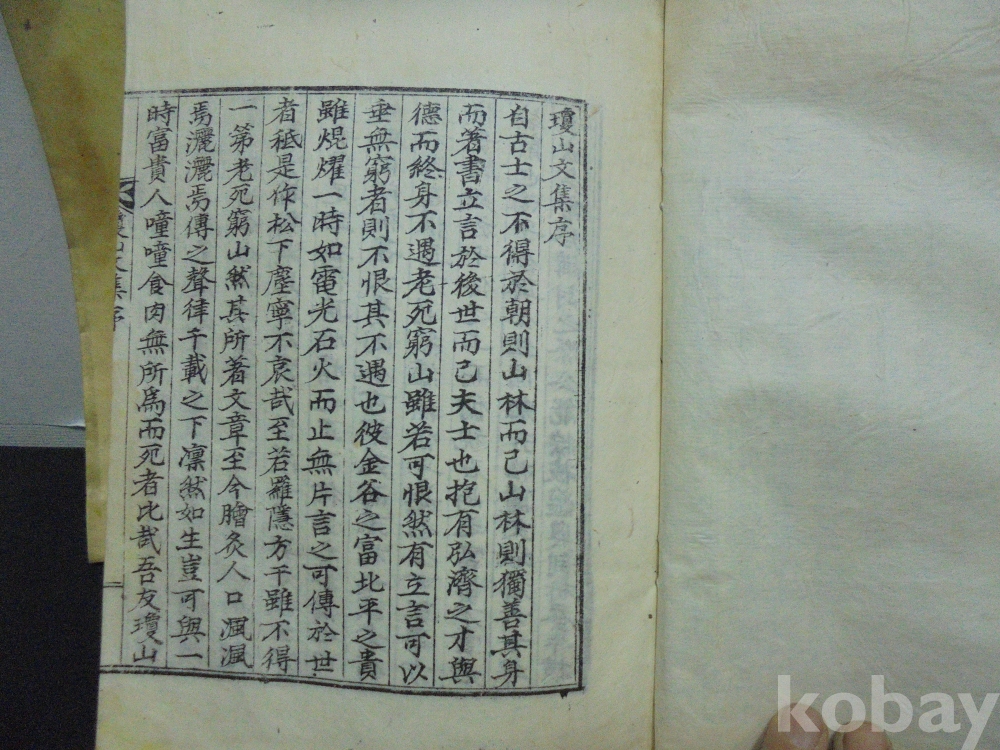 瓊山文集序
自古士之不得於朝則山林而已山林則獨善其身
而著書立言於後世而已夫士也抱有弘濟之才與
德而終身不遇老死窮山雖若可恨然有立言可以
垂無窮者則不恨其不遇也彼金谷之富北平之貴
雖焜耀一時如電光石火而止無片言之可傳於世
者秪是作松下塵寧不哀哉至若羅隱方干雖不得
一第老死窮山然其所著文章至今膾灸人口渢渢
焉灑灑焉傳之聲律千載之下凜然如生豈可與一
時富貴人噇噇食肉無所爲而死者比哉吾友瓊山
瓊山文集序
kobay